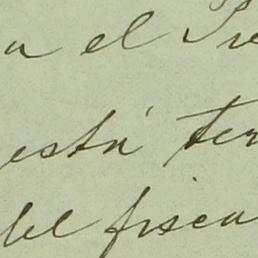 a el Pre
está ter
del fisca